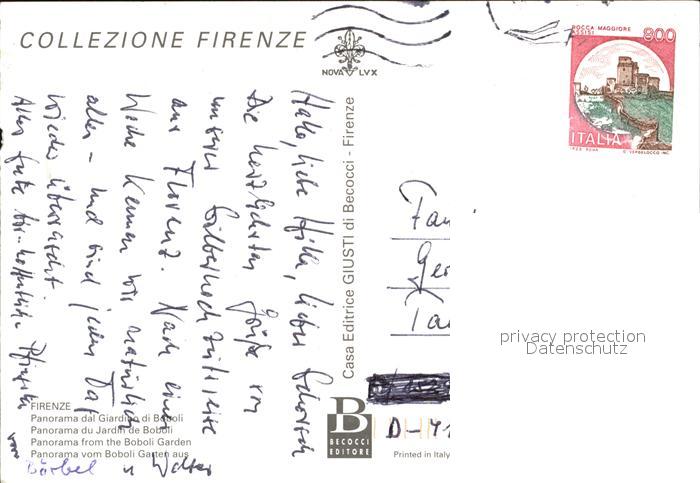 COLLEZIONE FIRENZE
NOVA LVX
ROCCA MAGGIORE
ASSISI
800
ITALIA
Hallo, liebe Hilla, lieber Schorsch
Die herzlichsten Grüße von
unserer Silberhochzeitsreise
aus Florenz. Nach einer
Woche kennen wir natürlich
alles – und sind jeden Tag
wieder überrascht.
Alles Gute
von Bärbel u Walter
Casa Editrice GIUSTI di Becocci - Firenze
Fam
Ger
D-41
privacy protection
Datenschutz
FIRENZE
Panorama dal Giardino di Boboli
Panorama du Jardin de Boboli
Panorama from the Boboli Garden
Panorama vom Boboli Garten aus
B
BECOCCI
EDITORE
Printed in Italy